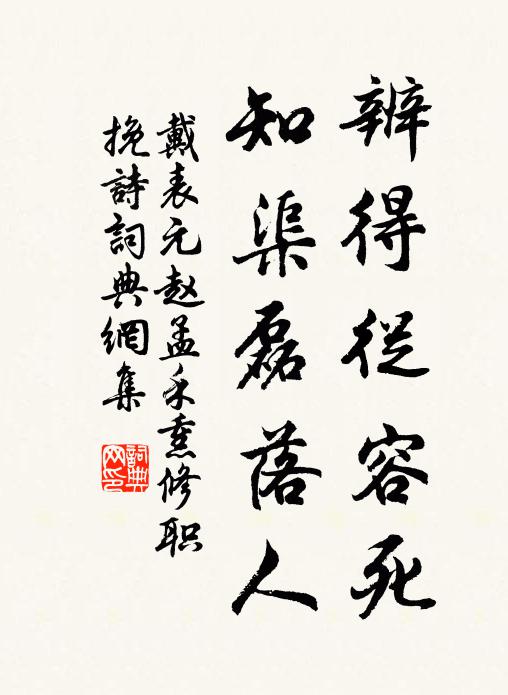 辨得從容死
知渠磊落人
戴表元赵孟禾熏修职
挽詩詞典網集
詞典网印